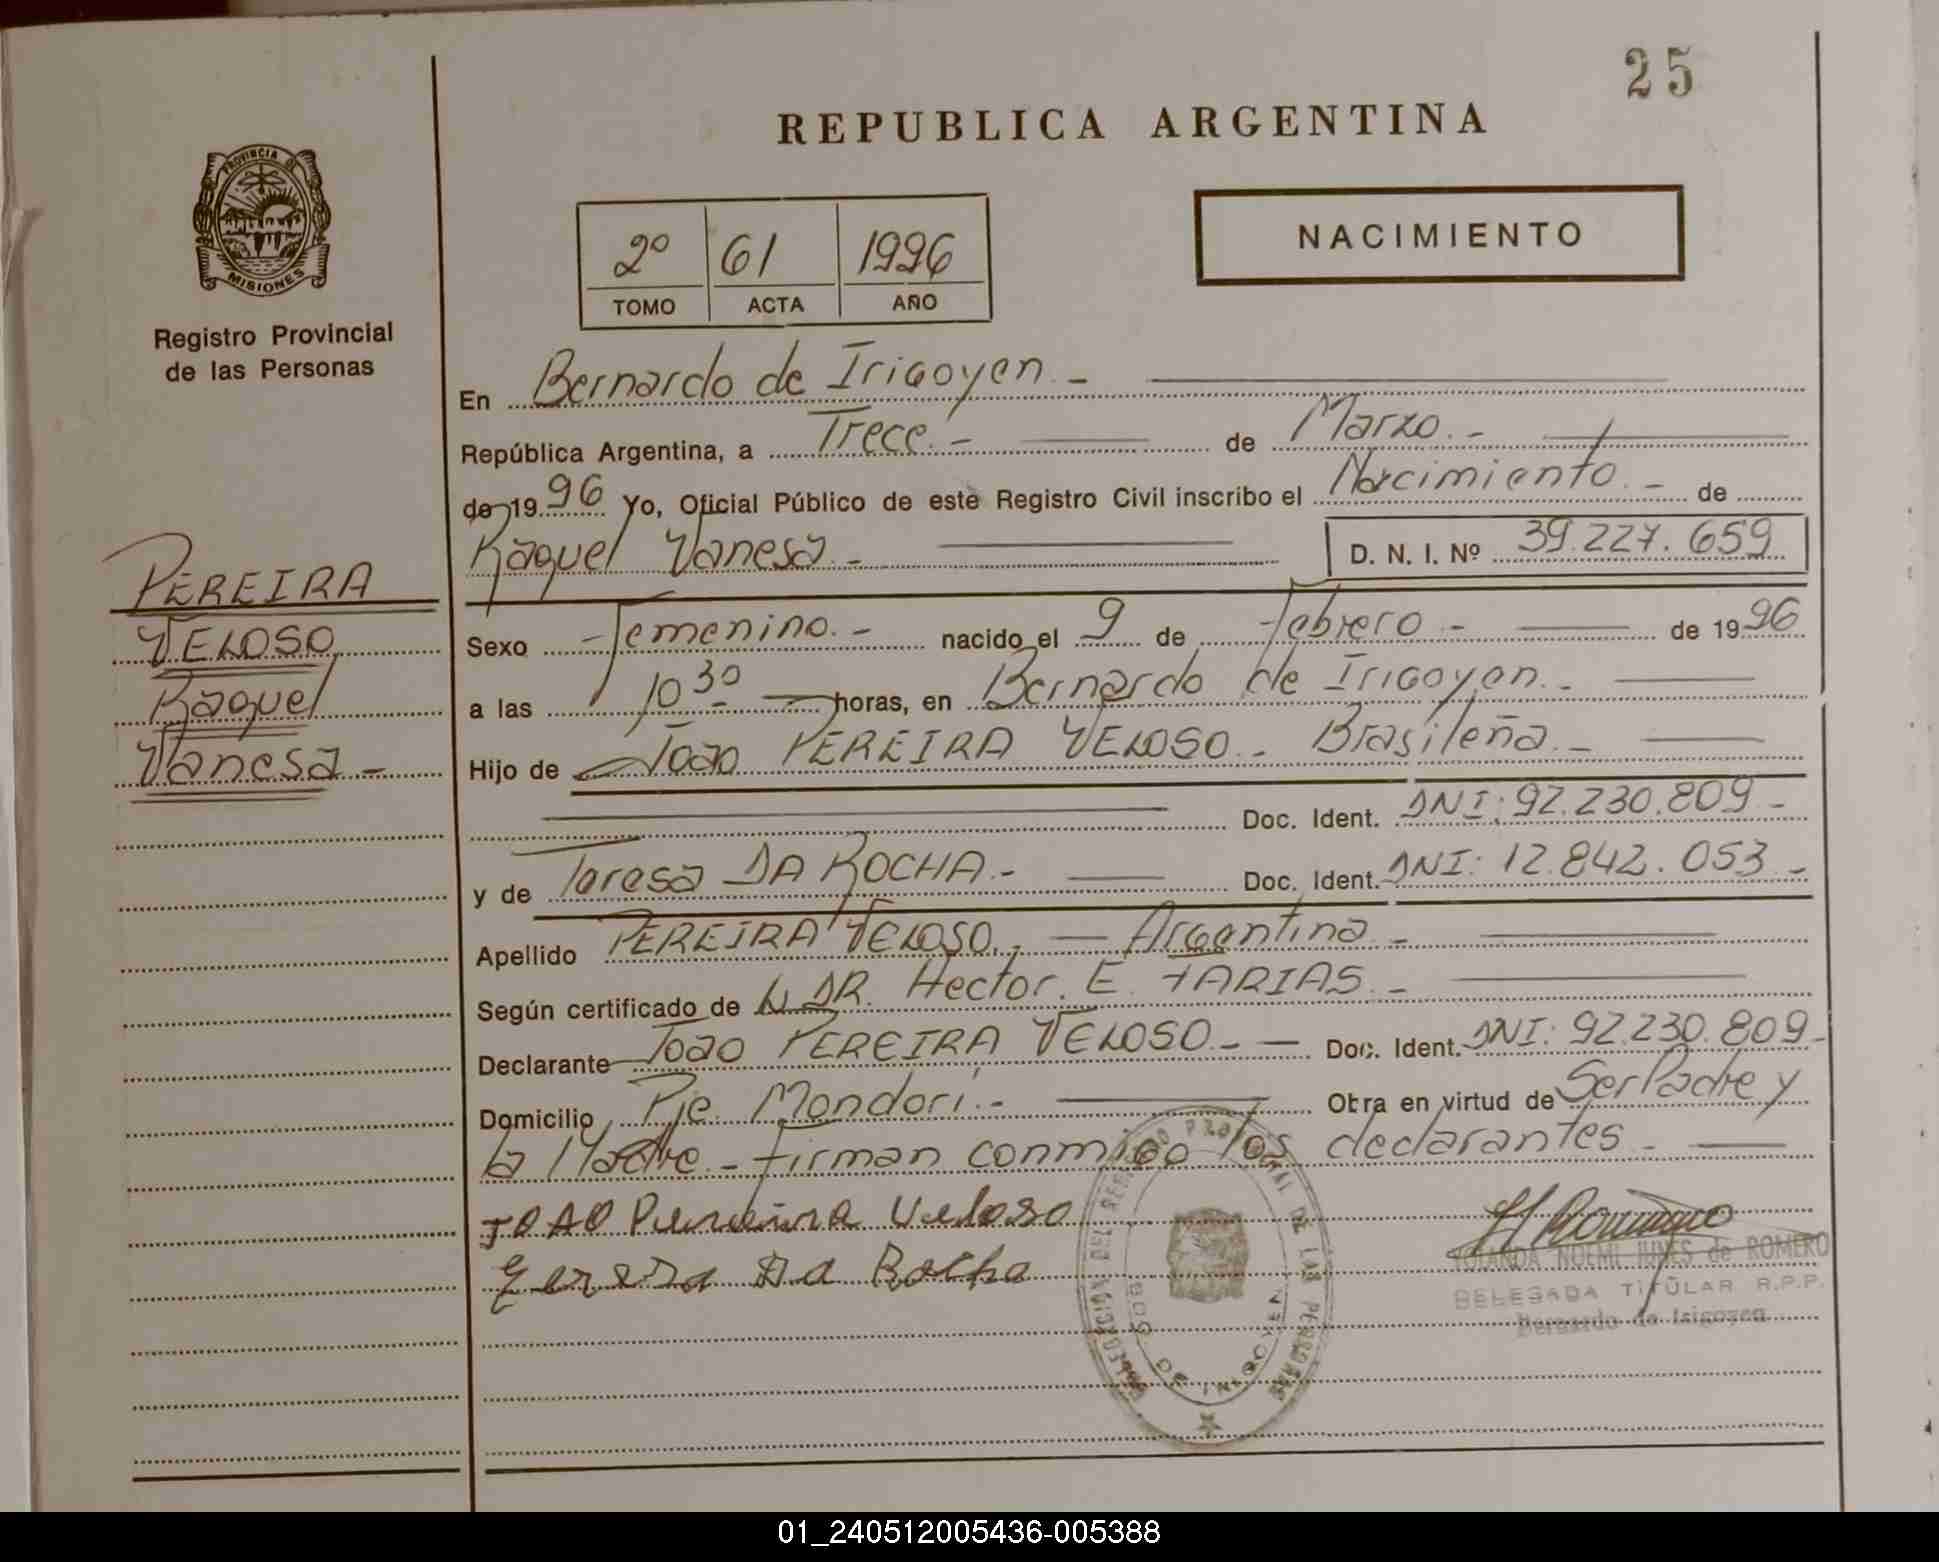 25
REPUBLICA ARGENTINA
PROVINCIA DE
MISIONES
Registro Provincial
de las Personas
2º 61 1996
TOMO ACTA AÑO
NACIMIENTO
En Bernardo de Irigoyen.-
República Argentina, a Trece.- de Marzo.-
de 1996 Yo, Oficial Público de este Registro Civil inscribo el Nacimiento.- de
Raquel Vanesa.- D. N. I. Nº 39.227.659
PEREIRA
VELOSO
Raquel
Vanesa.-
Sexo Femenino.- nacido el 9 de febrero.- de 1996
a las 10 30 horas, en Bernardo de Irigoyen.-
Hijo de Joao PEREIRA VELOSO.- Brasileña.-
Doc. Ident. DNI: 92.230.809.-
y de Teresa DA ROCHA.- Doc. Ident. DNI: 12.842.053.-
Apellido PEREIRA VELOSO.- Argentina.-
Según certificado de DR. Hector. E. FARIAS.-
Declarante Joao PEREIRA VELOSO.- Doc. Ident. DNI: 92.230.809.-
Domicilio Pje. Mondori.- Obra en virtud de Ser Padre y
la Madre.- firman conmigo los declarantes.-
JOAO Pereira Veloso
Da Rocha
YOLANDA NOEMI de ROMERO
DELEGADA TITULAR R.P.P.
Bernardo de Irigoyen
DEL REGISTRO PROVINCIAL DE LAS PERSONAS
BDO. DE IRIGOYEN
01_240512005436-005388